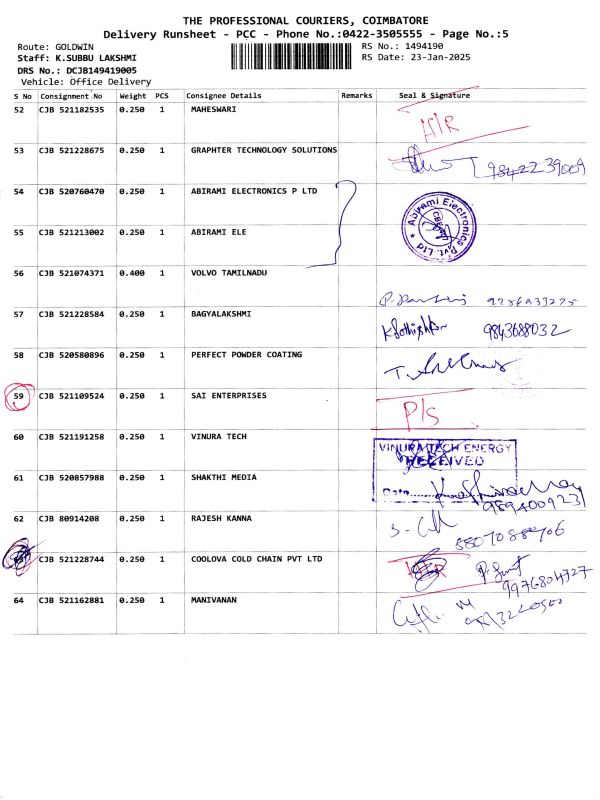 THE PROFESSIONAL COURIERS, COIMBATORE
Delivery Runsheet - PCC - Phone No.:0422-3505555 - Page No.:5
Route: GOLDWIN
RS No.: 1494190
Staff: K.SUBBU LAKSHMI
RS Date: 23-Jan-2025
DRS No.: DCJB149419005
Vehicle: Office Delivery
S No Consignment No Weight PCS Consignee Details Remarks Seal & Signature
52 CJB 521182535 0.250 1 MAHESWARI
53 CJB 521228675 0.250 1 GRAPHTER TECHNOLOGY SOLUTIONS 9842239009
54 CJB 520760470 0.250 1 ABIRAMI ELECTRONICS P LTD
Abirami Electronics Pvt. Ltd
55 CJB 521213002 0.250 1 ABIRAMI ELE
56 CJB 521074371 0.400 1 VOLVO TAMILNADU
57 CJB 521228584 0.250 1 BAGYALAKSHMI 9843688032
58 CJB 520580896 0.250 1 PERFECT POWDER COATING
59 CJB 521109524 0.250 1 SAI ENTERPRISES P/S
60 CJB 521191258 0.250 1 VINURA TECH
VINURA TECH ENERGY
RECEIVED
Date
61 CJB 520857988 0.250 1 SHAKTHI MEDIA 9894009231
62 CJB 80914208 0.250 1 RAJESH KANNA
CJB 521228744 0.250 1 COOLOVA COLD CHAIN PVT LTD 9976804727
64 CJB 521162881 0.250 1 MANIVANAN